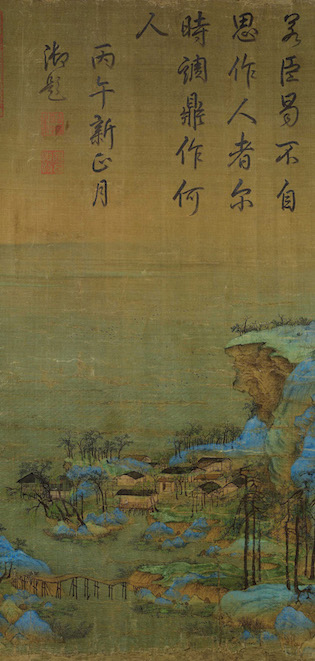 若臣曷不自
思作人者尔
時調鼎作何
人
丙午新正月
御題